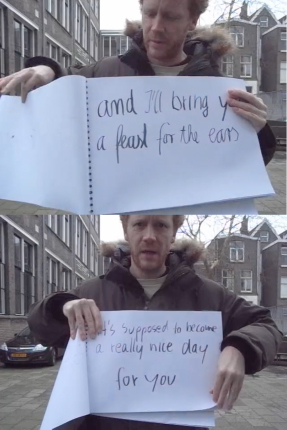 and I'll bring y
a feast for the ears
it's supposed to become
a really nice day
for you